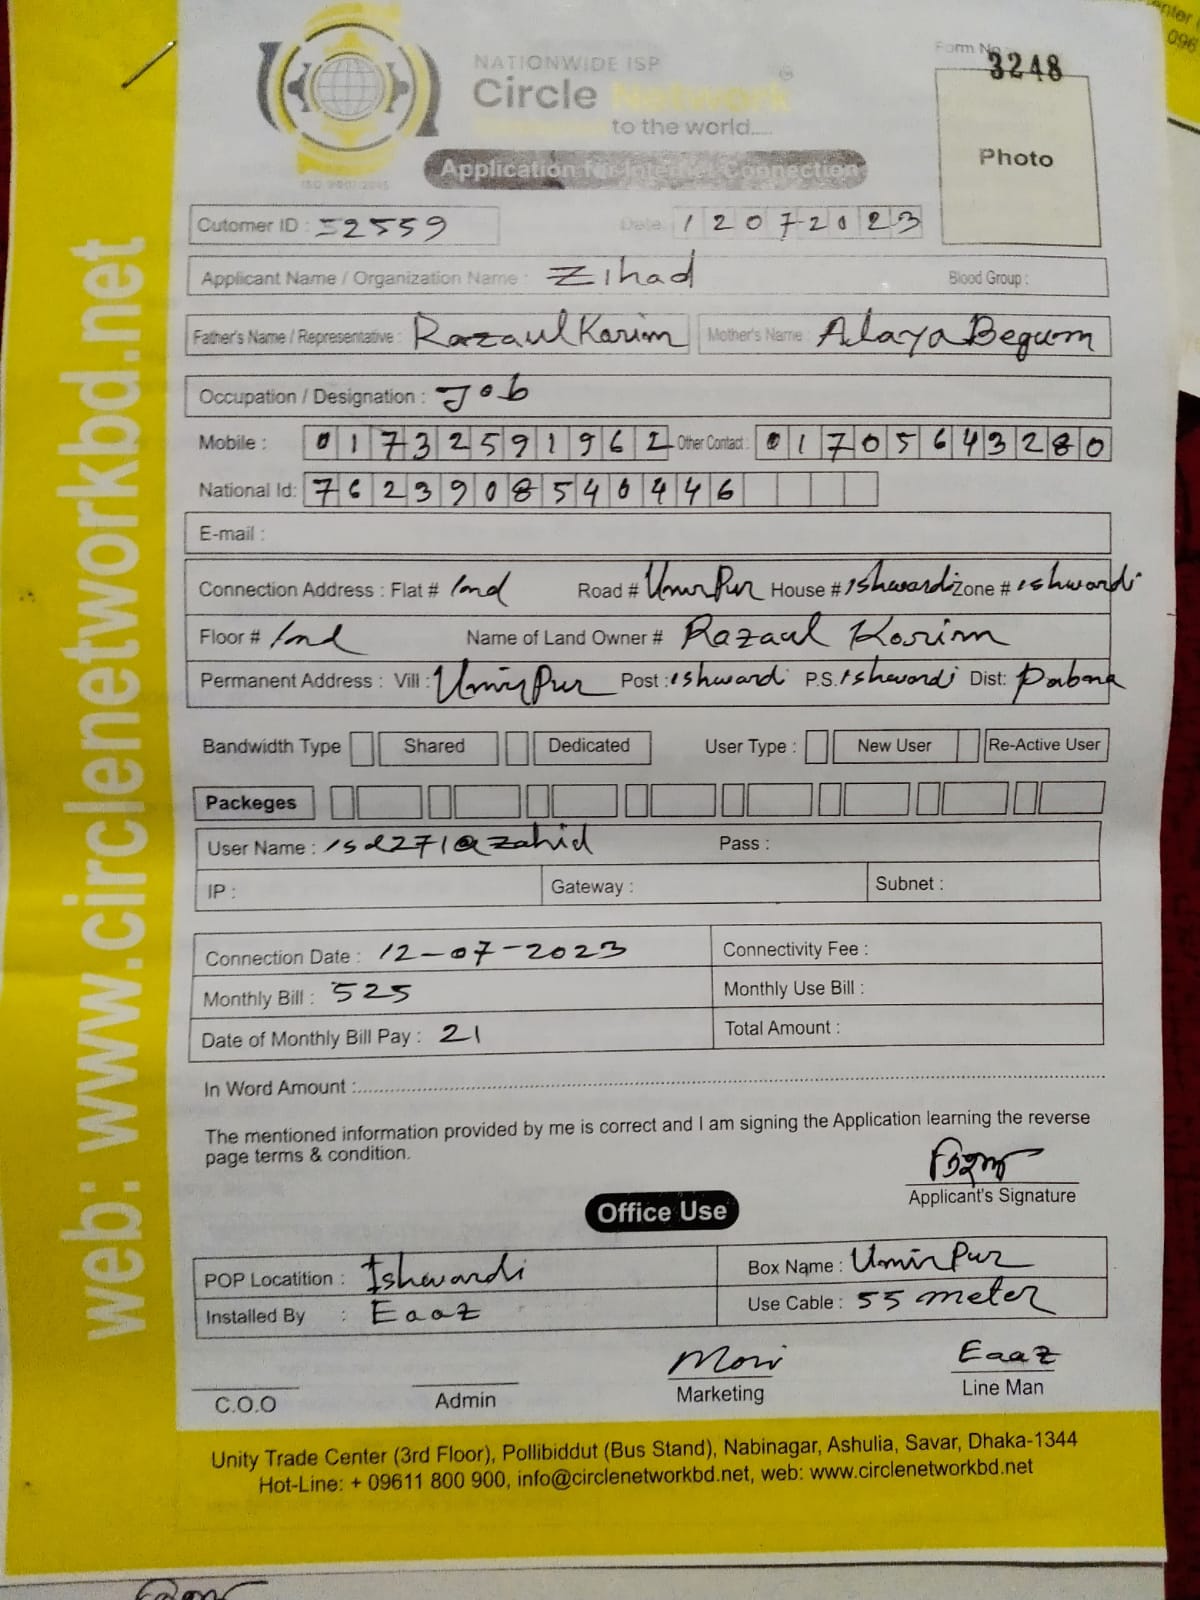 enter
096
Form No
3248
NATIONWIDE ISP
Circle Network
to the world.....
ISO 9001:2015
Application for Internet Connection
Photo
Cutomer ID : 52559
Date: 12072023
Applicant Name / Organization Name : Zihad Blood Group :
Father's Name / Representative : Razaul Karim Mother's Name : Alaya Begum
Occupation / Designation : Job
Mobile : 01732591962 Other Contact : 01705643280
National Id: 7623908540446
E-mail :
Connection Address : Flat # Ind Road # UmirPur House # Ishwardi Zone # ishwardi
Floor # Ind Name of Land Owner # Razaul Korim
Permanent Address : Vill : UmirPur Post : ishwardi P.S. Ishwardi Dist: Pabna
Bandwidth Type Shared Dedicated User Type : New User Re-Active User
Packeges
User Name : isd271@zahid Pass :
IP : Gateway : Subnet :
Connection Date : 12-07-2023 Connectivity Fee :
Monthly Bill : 525 Monthly Use Bill :
Date of Monthly Bill Pay : 21 Total Amount :
In Word Amount :
The mentioned information provided by me is correct and I am signing the Application learning the reverse
page terms & condition.
Applicant's Signature
Office Use
POP Locatition : Ishwardi Box Name : UmirPur
Installed By : Eaaz Use Cable : 55 meter
Moni Eaaz
C.O.O Admin Marketing Line Man
Unity Trade Center (3rd Floor), Pollibiddut (Bus Stand), Nabinagar, Ashulia, Savar, Dhaka-1344
Hot-Line: + 09611 800 900, info@circlenetworkbd.net, web: www.circlenetworkbd.net
web: www.circlenetworkbd.net